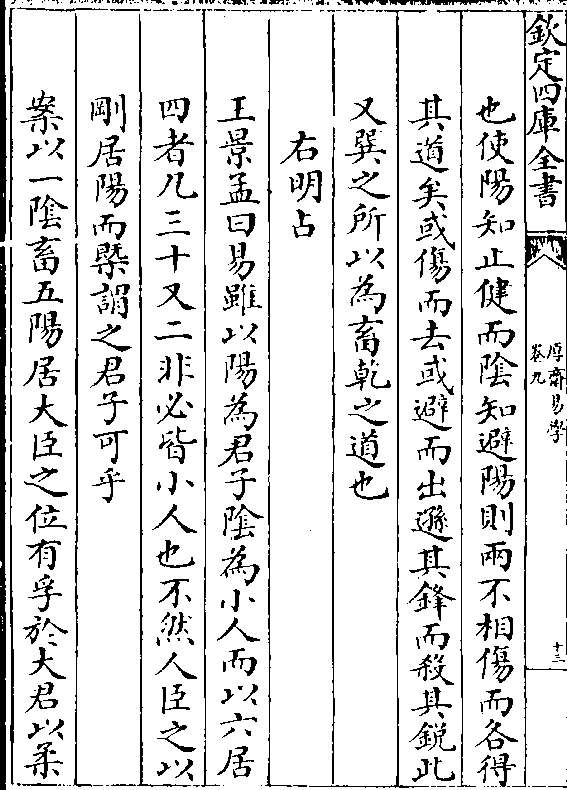 欽定四庫全書
厚齋易學
卷九
十三
也使陽知止健而陰知避陽則兩不相傷而各得
其道矣或傷而去或避而出遜其鋒而殺其鋭此
又巽之所以為畜乾之道也
右明占
王景孟曰易雖以陽為君子陰為小人而以六居
四者凡三十又二非必皆小人也不然人臣之以
剛居陽而槩謂之君子可乎
案以一陰畜五陽居大臣之位有孚於大君以柔